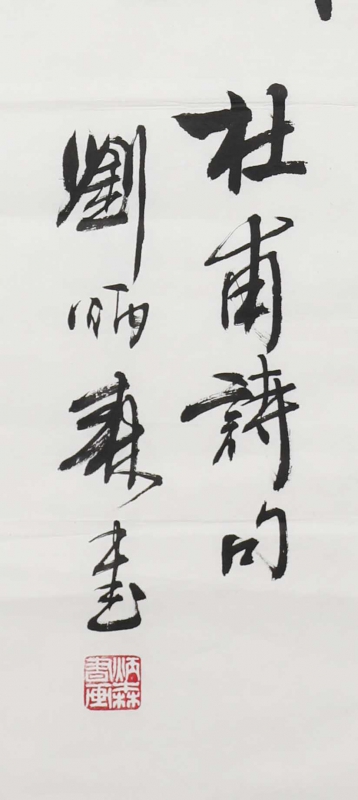 杜甫詩句
劉炳森書
炳森書画